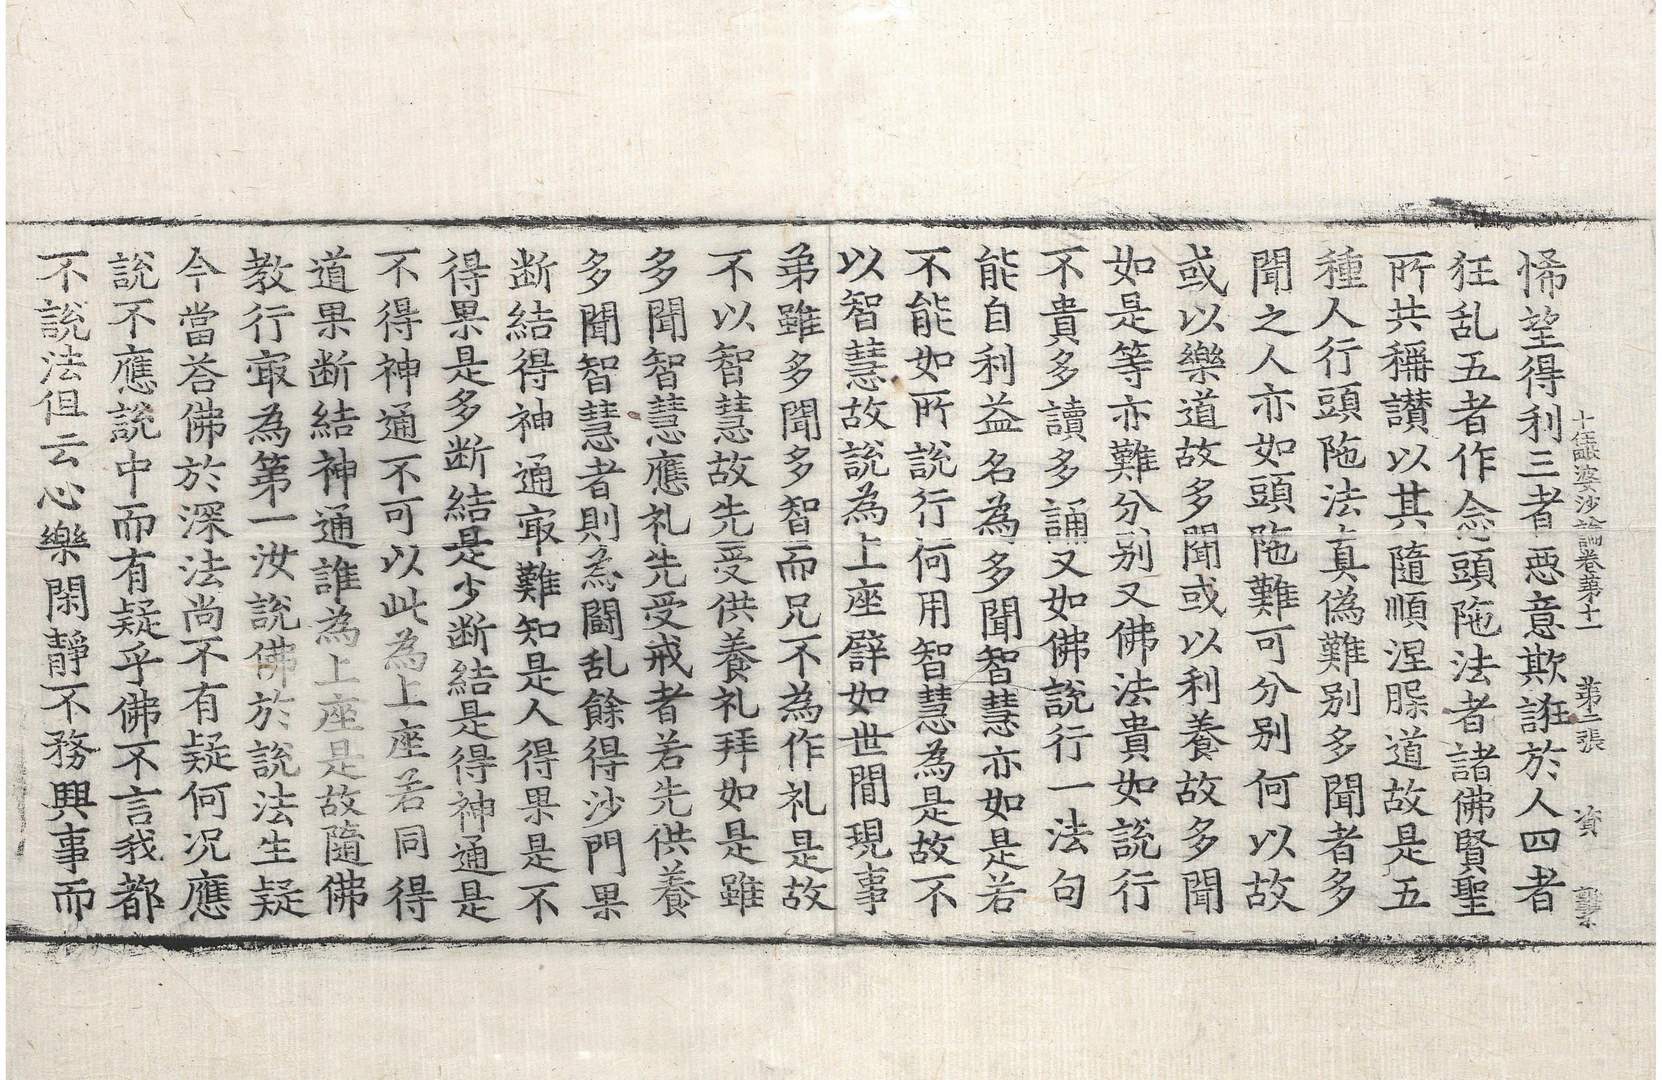 十住毗婆沙論卷第十一　第二張　資
悕望得利三者惡意欺誑於人四者
狂乱五者作念頭陁法者諸佛賢聖
所共稱讃以其隨順涅槃道故是五
種人行頭陁法真偽難别多聞者多
聞之人亦如頭陁難可分别何以故
或以樂道故多聞或以利養故多聞
如是等亦難分别又佛法貴如說行
不貴多讀多誦又如佛說行一法句
能自利益名為多聞智慧亦如是若
不能如所說行何用智慧為是故不
以智慧故說為上座譬如世間現事
弟雖多聞多智而兄不為作礼是故
不以智慧故先受供養礼拜如是雖
多聞智慧應礼先受戒者若先供養
多聞智慧者則為鬪乱餘得沙門果
断結得神通冣難知是人得果是不
得果是多断結是少断結是得神通是
不得神通不可以此為上座若同得
道果断結神通誰為上座是故隨佛
教行冣為第一汝說佛於說法生疑
今當荅佛於深法尚不有疑何况應
說不應說中而有疑乎佛不言我都
不說法但云心樂閑靜不務興事而